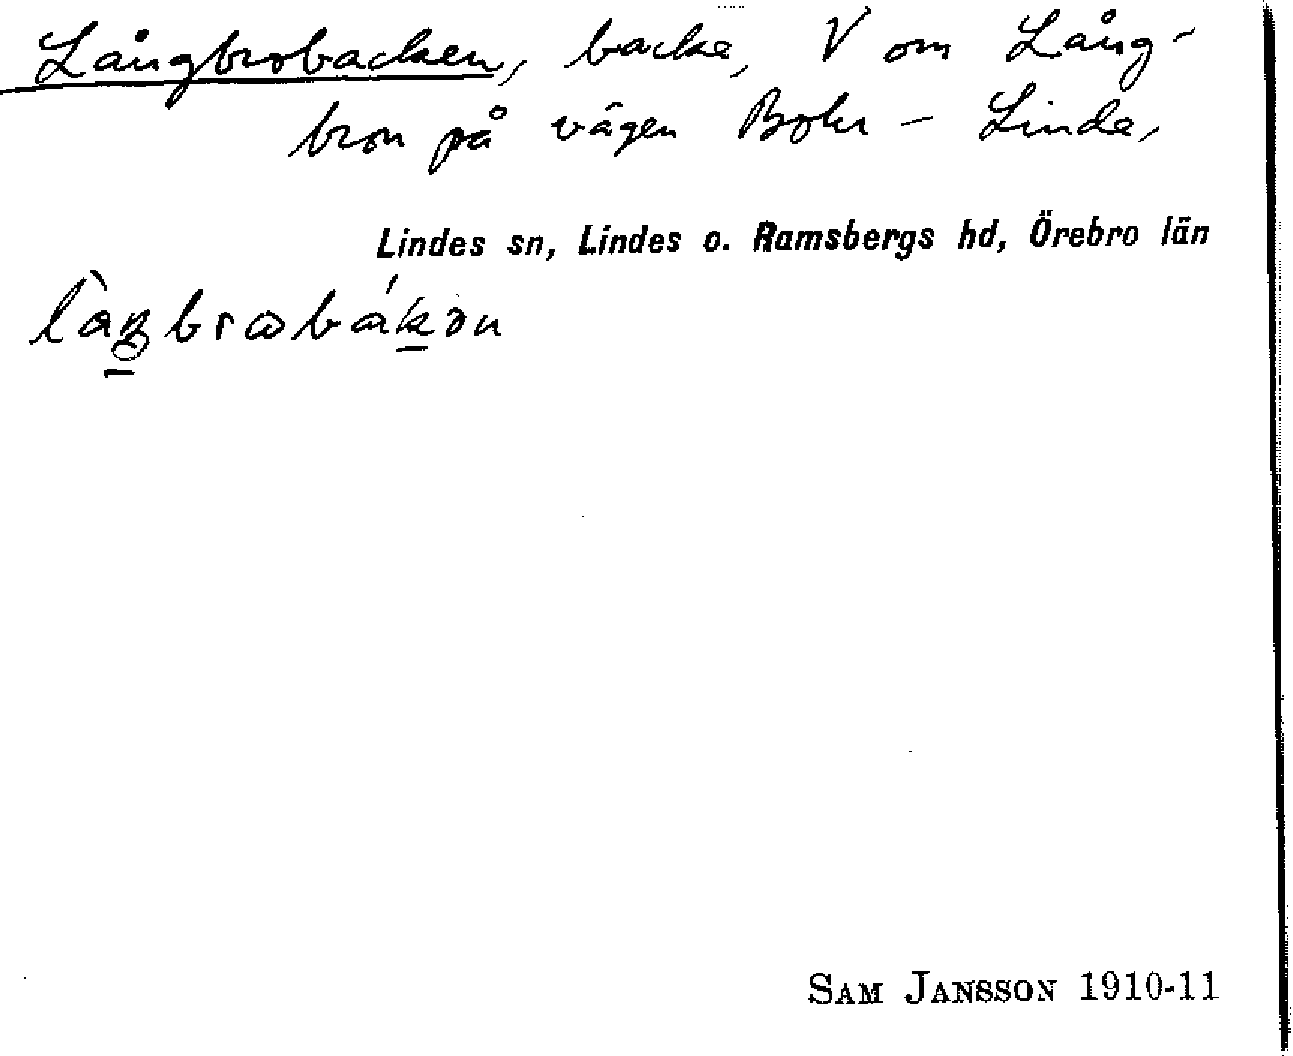 Långbrobacken, backe, V om Lång-
bron på vägen Bohr – Linde,
Lindes sn, Lindes o. Ramsbergs hd, Örebro län
SAM JANSSON 1910-11